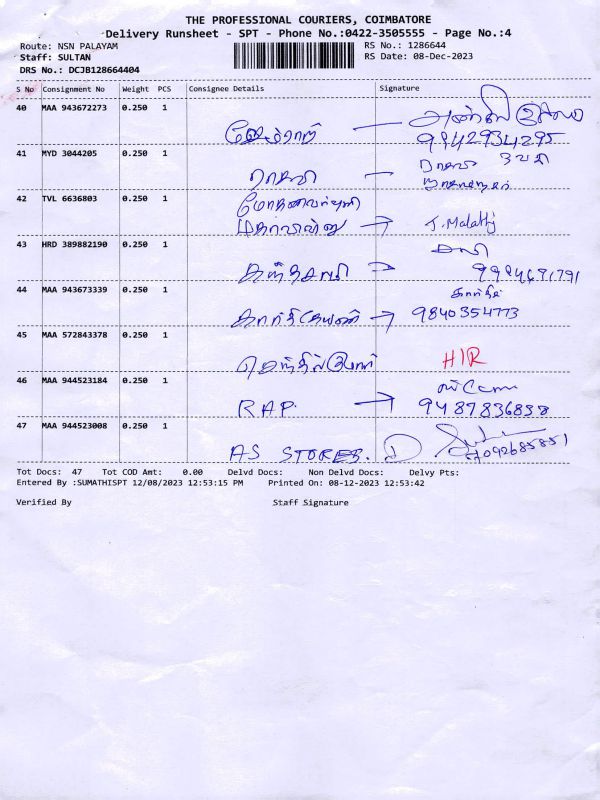 THE PROFESSIONAL COURIERS, COIMBATORE
Delivery Runsheet - SPT - Phone No.:0422-3505555 - Page No.:4
Route: NSN PALAYAM RS No.: 1286644
Staff: SULTAN RS Date: 08-Dec-2023
DRS No.: DCJB128664404
S No Consignment No Weight PCS Consignee Details Signature
40 MAA 943672273 0.250 1
99429 34295
41 MYD 3044205 0.250 1
42 TVL 6636803 0.250 1
J. Malathi
43 HRD 389882190 0.250 1
கந்தசாமி 9994691791
44 MAA 943673339 0.250 1 கார்த்தி
கார்த்திகேயன் → 9840354773
45 MAA 572843378 0.250 1
H/R
46 MAA 944523184 0.250 1
RAP. → 9487836858
47 MAA 944523008 0.250 1
AS STORES.
Tot Docs: 47 Tot COD Amt: 0.00 Delvd Docs: Non Delvd Docs: Delvy Pts:
Entered By :SUMATHISPT 12/08/2023 12:53:15 PM Printed On: 08-12-2023 12:53:42
Verified By Staff Signature